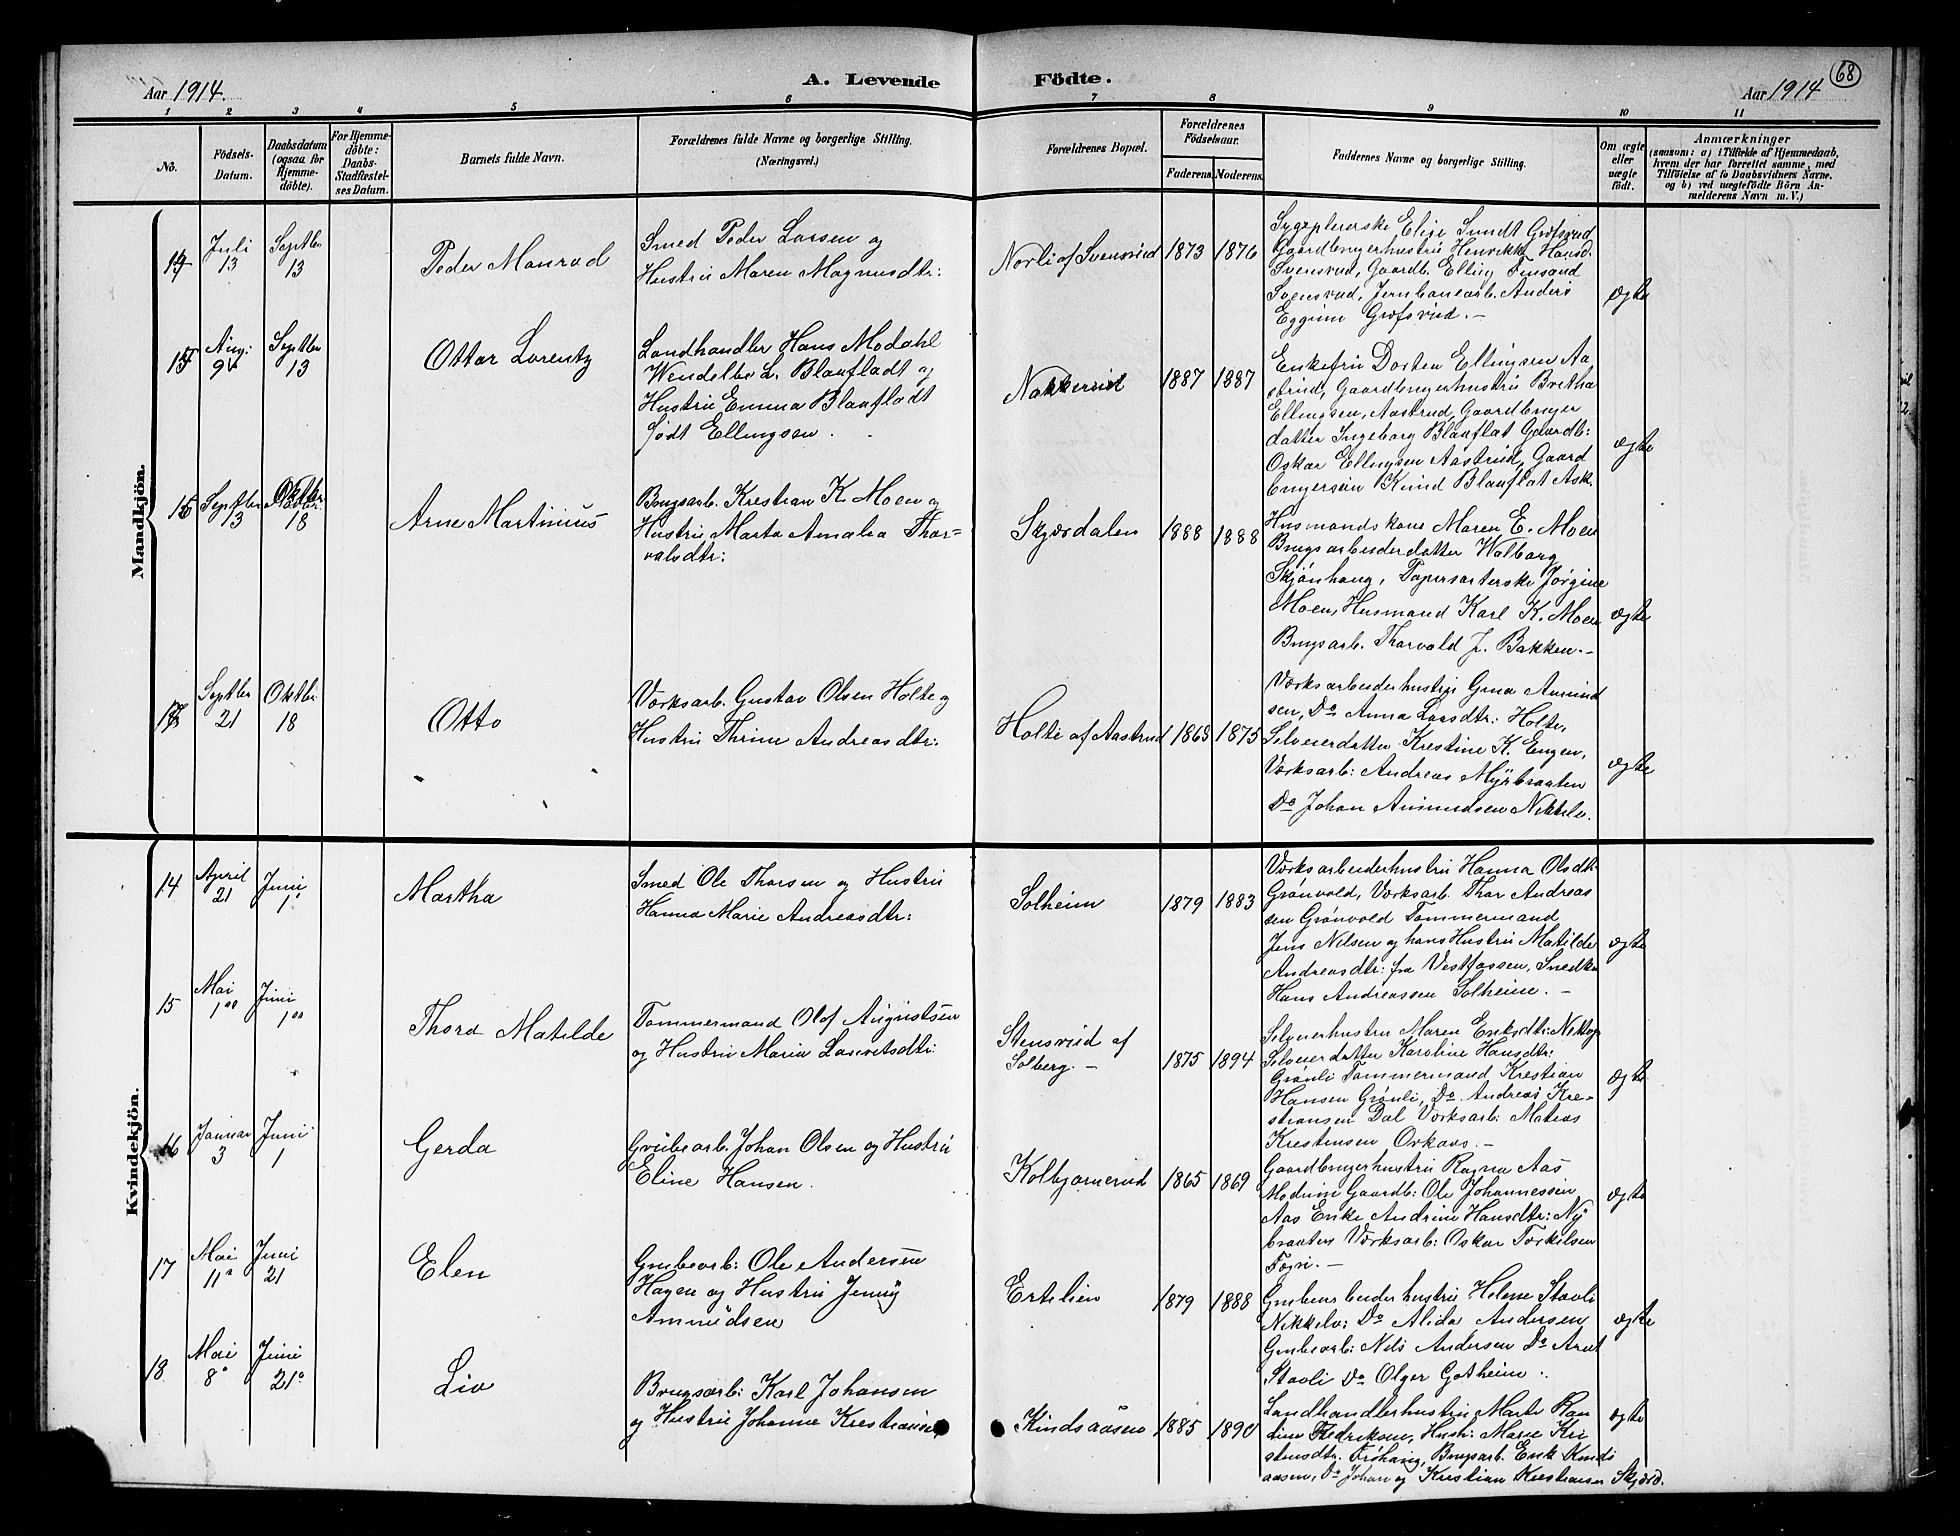 Aar 1914.
A. Levende
Födte.
Aar 1914
68
1 2 3 4 5 6 7 8 9 10 11
No.
Födsels-
Datum.
Daabsdatum
(ogsaa for
Hjemme-
döbte).
For Hjemme-
döbte:
Daabs-
Stadfæstel-
ses Datum.
Barnets fulde Navn.
Forældrenes fulde Navne og borgerlige Stilling.
(Næringsvei.)
Forældrenes Bopæl.
Forældrenes
Födselsaar.
Faderens. Moderens.
Faddernes Navne og borgerlige Stilling.
Om ægte
eller
uægte
født.
Anmærkninger
(saasom: a) i Tilfælde af Hjemmedaab,
hvem der har forrettet samme, med
Tilföielse af to Daabsvidners Navne.
og b) ved uægtefödte Börn An-
melderens Navn m. V.)
Mandkjön.
14
Juli
13
Septbr
13
Peder Monrad
Smed Peder Larsen og
Hustru Maren Magnusdtr:
Norli af Svensrud
1873
1876
Sygepleierske Elise Sundt Grøfsrud
Gaardbrugerhustru Henrikke Hansd.
Svensrud, Gaardb. Elling Tinsand
Svensrud, Jernbanearb. Anders
Eggum Grøfsrud. –
ægte
15
Aug:
9
Septbr
13
Ottar Lorentz
Landhandler Hans Modahl
Wendelbo L. Blaafladt og
Hustru Emma Blaafladt
født Ellingsen.
Nakkerud
1887
1887
Enkefru Dorten Ellingsen Aa-
strud, Gaardbrugerhustru Bretha
Ellingsen, Aastrud, Gaardbruger
datter Ingeborg Blaaflat Gaardb:
Oskar Ellingsen Aastrud, Gaard
brugersøn Knud Blaaflat Ask.
ægte
16
Septbr
13
Oktbr
18
Arne Martinius
Brugsarb. Krestian K. Moen og
Hustru Marta Amalia Thor=
valsdtr:
Skjærdalen
1888
1888
Husmandskone Maren E. Moen
Brugsarbeiderdatter Walborg
Skjønhaug, Papersarterske Jørgine
Moen, Husmand Karl K. Moen
Brugsarb. Thorvald J. Bakken. –
ægte
17
Septbr
21
Oktbr
18
Otto
Værksarb. Gustav Olsen Holte og
Hustru Thrine Andreasdtr:
Holte af Aastrud
1863
1875
Værksarbeiderhustru Gina Amund
sen, Do Anna Larsdtr: Holte,
Selveierdatter Krestine K. Engen,
Værksarb: Andreas Myrbraaten
Do Johan Amundsen Nikkelv.
ægte
Kvindekjön.
14
April
21
Juni
1
Martha
Smed Ole Thorsen og Hustru
Hanna Marie Andreasdtr:
Solheim
1879
1883
Værksarbeiderhustru Hanna Olsdtr
Grønvold, Værksarb. Thor Andreas
sen Grønvold Tømmermand
Jens Nilsen og hans Hustru Matilde
Andreasdtr: fra Vestfossen, Snedker
Hans Andreassen Solheim. –
ægte
15
Mai
1
Juni
1
Thora Matilde
Tømmermand Olof Augustsen
og Hustru Maria Lauritsdtr:
Stensrud af
Solberg. –
1875
1894
Selveierhustru Maren Eriksdtr:
Selveierdatter Karoline Hansdtr:
Grønli Tømmermand Krestian
Hansen Grønli, Do. Andreas Kre-
stiansen Dal Værksarb: Matias
Krestensen Orkaas. –
ægte
16
Januar
3
Juni
1
Gerda
Grubearb. Johan Olsen og Hustru
Eline Hansen.
Kolbjørnerud
1865
1869
Gaardbrugerhustru Ragna Aas
Modum Gaardb: Ole Johannessen
Aas Enke Andrine Hansdtr: Ny
braaten Værksarb: Oskar Torkilsen
ægte
17
Mai
11
Juni
21
Elen
Grubearb: Ole Andersen
Hagen og Hustru Jenny
Amundsen
Ertelien
1879
1888
Grubearbeiderhustru Helene Stavli
Nikkelv: Do Alida Andersen
Grubearb: Nils Andersen Do Arnt
Stavli Do Olger Gotheim.
ægte
18
Mai
8
Juni
21
Liv
Brugsarb: Karl Johansen
og Hustru Johanne Krestiansen
Kindsaasen
1885
1890
Landhandlerhustru Marte Ran
dine Fredriksen, Hustr: Marie Kri
stensdtr. Frøhaug, Brugsarb. Erik Kinds
aasen, Do Johan og Krestian Krestiansen Skjærd.
ægte